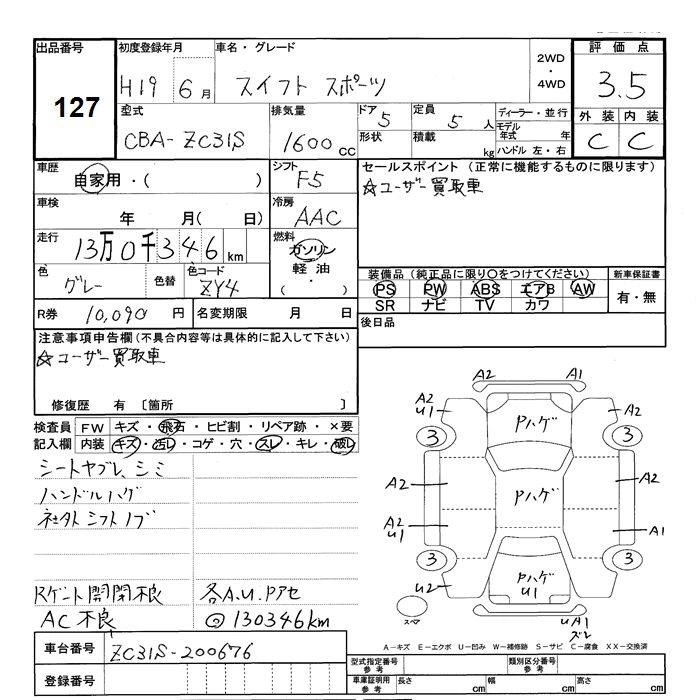 出品番号 初度登録年月 車名・グレード 評価点
127 H19 6月 スイフト スポーツ 2WD・4WD 3.5
外装 内装
C C
型式 排気量 ドア 定員 ディーラー・並行
CBA-ZC31S 1600cc 5 5人 モデル年式 年
形状 積載 kg ハンドル 左・右
車歴 シフト セールスポイント (正常に機能するものに限ります)
自家用・( ) F5 ☆ユーザー買取車
車検 冷房
年 月( 日) AAC
走行 燃料
13万0千346km ガソリン
軽油
・
( )
色 色替 色コード
グレー ZY4
装備品(純正品に限り○をつけてください) 新車保証書
PS PW ABS エアB AW 有・無
SR ナビ TV カワ
R券 10,090円 名変期限 月 日
後日品
注意事項申告欄(不具合内容等は具体的に記入して下さい)
☆ユーザー買取車
修復歴 有 〔箇所 〕
検査員 FW キズ・飛石・ヒビ割・リペア跡・×要
記入欄 内装 キズ・汚レ・コゲ・穴・スレ・キレ・破レ
シートヤブレ、シミ
ハンドルハゲ
社外シフトノブ
Rゲート開閉不良 各A.U.Pアセ
AC不良 @130346km
A2 A1
A2 U1 Pハゲ A2
3 3
A2 Pハゲ A2
A2 U1 A1
3 3
U2 Pハゲ U1 A2
スペア UA1 ズレ
A-キズ E-エクボ U-凹み W-補修跡 S-サビ C-腐食 XX-交換済
車台番号 ZC31S-200676
登録番号
型式指定番号 参考 類別区分番号 参考
車庫証明用 参考 長さ cm 幅 cm 高さ cm